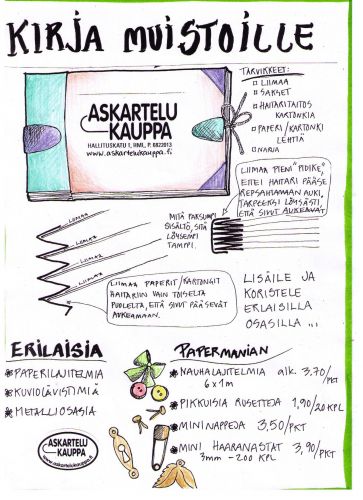 KIRJA MUISTOILLE
TARVIKKEET:
LIIMAA
SAKSET
HAITARITAITOS
KARTONKIA
PAPERI/KARTONKI
LEHTIÄ
NARUA
ASKARTELU
KAUPPA
HALLITUSKATU 1, HML, P. 6822013
www.askartelukauppa.fi
LIIMAA PIENI "PIDIKE",
ETTEI HAITARI PÄÄSE
REPSAHTAMAAN AUKI,
TARPEEKSI LÖYSÄSTI,
ETTÄ SIVUT AUKEAVAT
MITÄ PAKSUMPI
SISÄLTÖ, SITÄ
LÖYSEMPI
TAMPPI.
LIIMAA
LIIMAA
LIIMAA
LIIMAA
LIIMAA PAPERIT/KARTONGIT
HAITARIIN VAIN TOISELTA
PUOLELTA, ETTÄ SIVUT PÄÄSEVÄT
AUKEAMAAN.
LISÄILE JA
KORISTELE
ERLAISILLA
OSASILLA ...
ERILAISIA
PAPERILAJITELMIA
KUVIOLÄVISTIMIÄ
METALLIOSASIA
ASKARTELU
KAUPPA
www.askartelukauppa.fi
PAPERMANIAN
NAUHALAJITELMIA alk. 3,70/PKT
6x1m
PIKKUISIA RUSETTEJA 1,90/20 KPL
MININAPPEJA 3,50/PKT
MINI HAARANASTAT 3,90/PKT
3mm -200 KPL